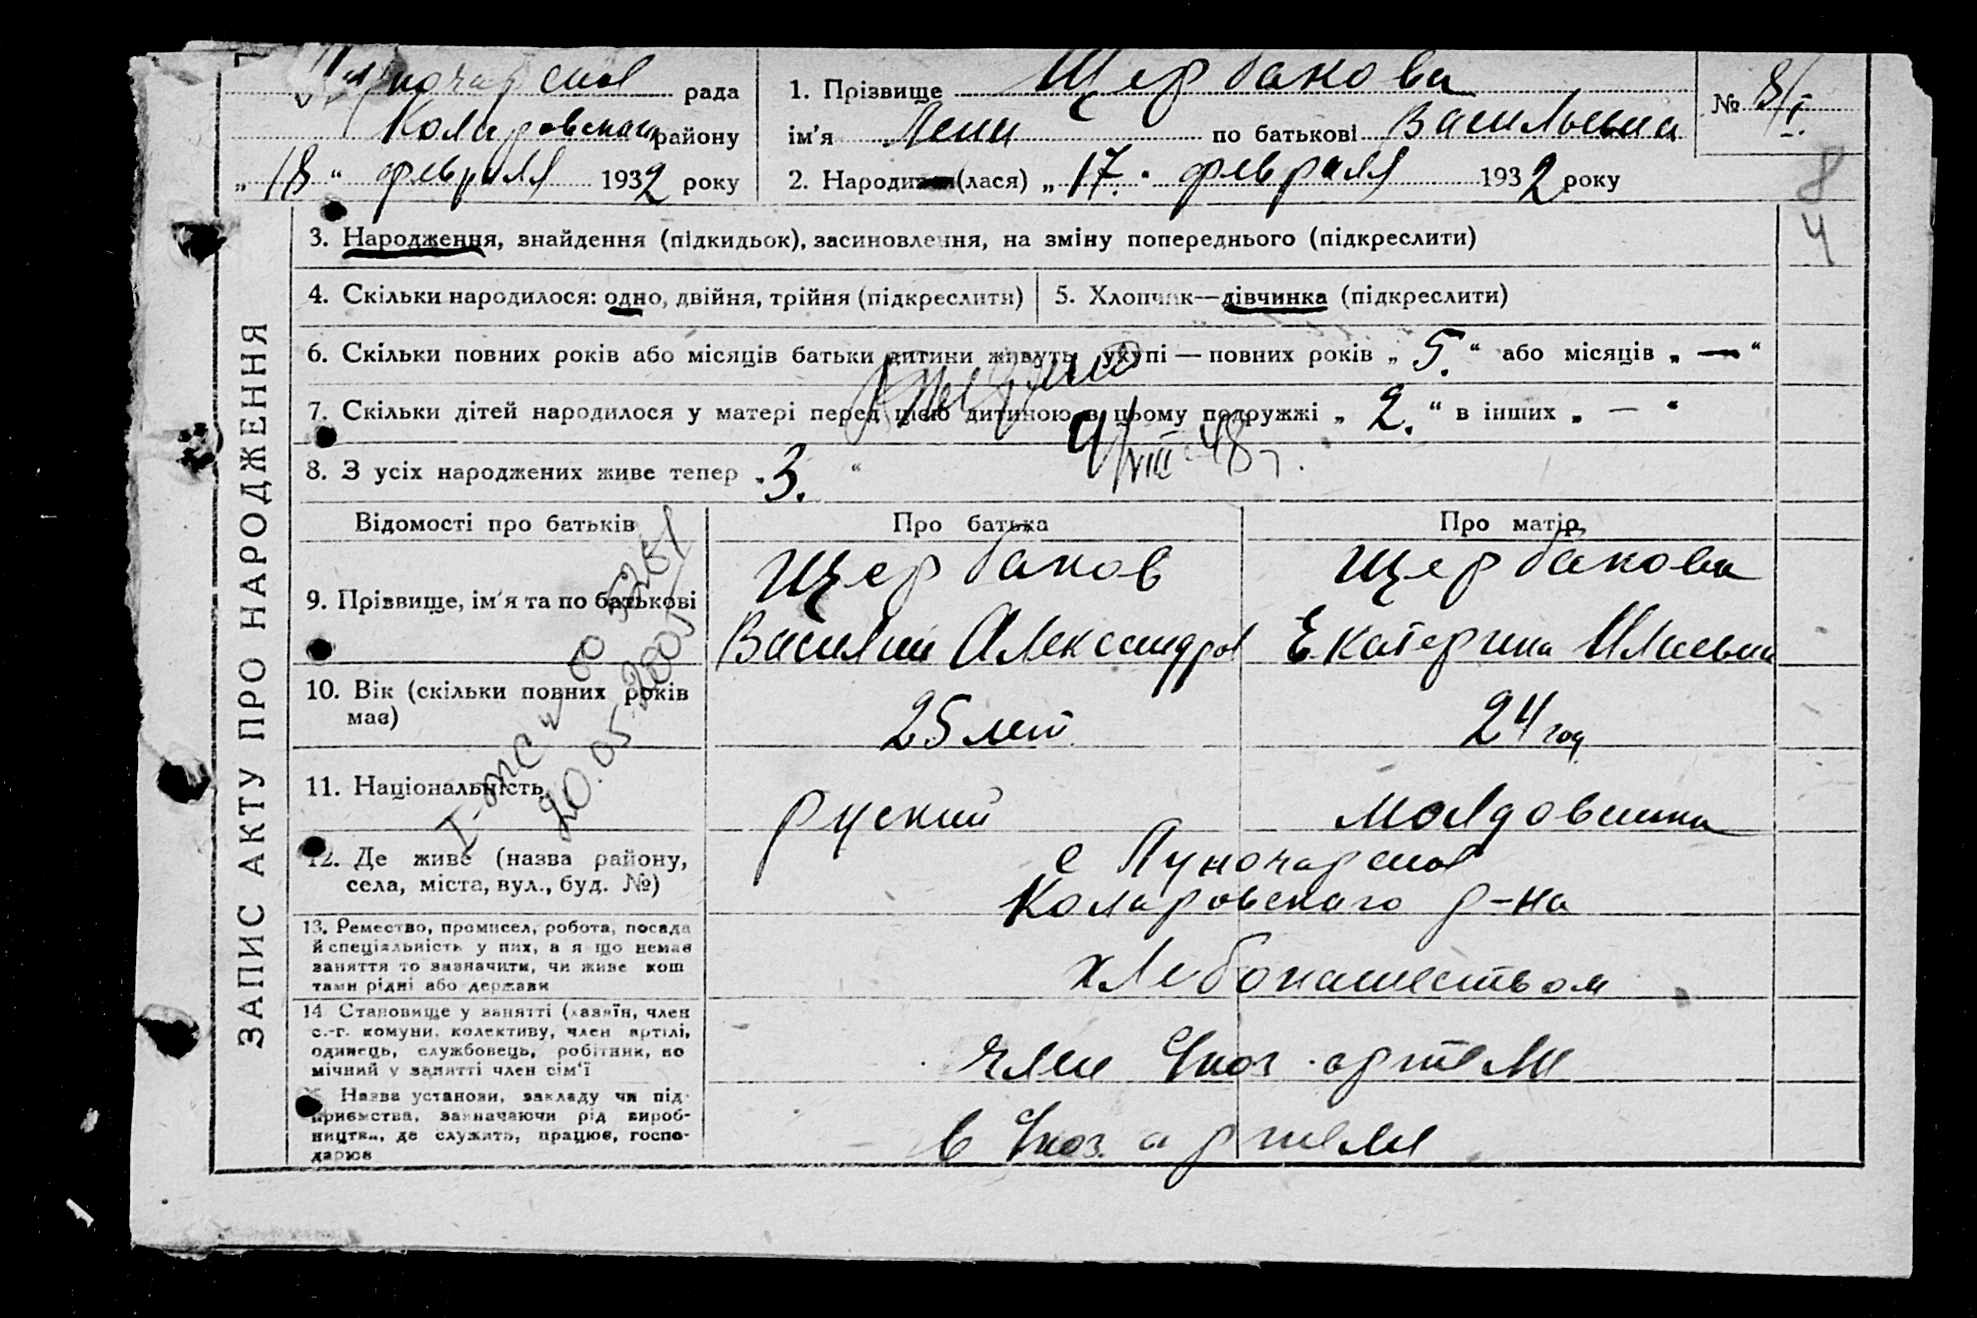 рада
Коларовская району
„ 18 “ февраля 1932 року
1. Прізвище Щербакова
ім'я по батькові Васильевна
2. Народи (лася) „ 17. “ февраля 1932 року
№ 8/I.
8
4
ЗАПИС АКТУ ПРО НАРОДЖЕННЯ
3. Народження, знайдення (підкидьок), засиновлення, на зміну попереднього (підкреслити)
4. Скільки народилося: одно, двійня, трійня (підкреслити)
5. Хлопчик—дівчинка (підкреслити)
6. Скільки повних років або місяців батьки дитини живуть укупі — повних років „ 5. “ або місяців „ — “
7. Скільки дітей народилося у матері перед цією дитиною в цьому подружжі „ 2. “ в інших „ — “
9/VIII-48 г.
8. З усіх народжених живе тепер „ 3. “
Відомості про батьків
Про батька
Про матір
9. Прізвище, ім'я та по батькові
Щербаков
Василий Александров
Щербакова
Екатерина Ильевна
10. Вік (скільки повних років має)
25 лет
24 год
20.05.2005
11. Національність
руский
молдованка
12. Де живе (назва району,
села, міста, вул., буд. №)
с Луночарское
Коларовского р-на
13. Ремество, промисел, робота, посада
й спеціяльність у них, а я що немає
заняття то зазначити, чи живе кош
тами рідні або держави
хлебопашеством
14 Становище у занятті (хазяїн, член
с.-г. комуни, колективу, член артілі,
одинець, службовець, робітник, по
мічний у занятті член сім'ї
член артели
Назва установи, закладу чи під-
приємства, зазначаючи рід вироб-
ництва, де служить, працює, госпо-
дарює
в артели